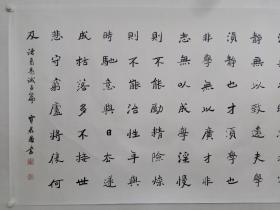 靜無以致遠夫學
須靜也才須學也
非學無以廣才非
志無以成學淫慢
則不能勵精險燥
則不能治性年與
時馳意與日去遂
成枯落多不接世
悲守窮廬將復何
及
諸葛亮誡子篇
書